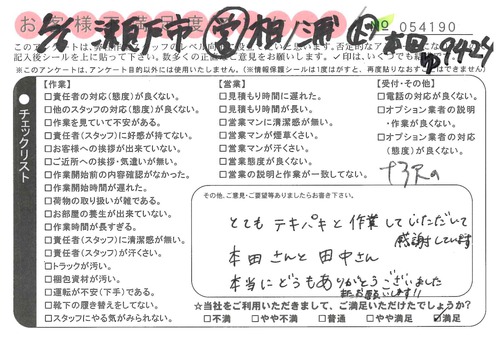 お客様満足度
No 054190
記入後シールを上に貼って下さい。数回の正直なご意見をお願いします。✓印は、いくつでも結構
(※このアンケートは、アンケート目的以外には使用いたしません。)(※情報保護シールは1度はがすと、再度貼りなおすことはできません)
チェックリスト
【作業】
□責任者の対応(態度)が良くない。
□他のスタッフの対応(態度)が良くない。
□作業を見ていて不安がある。
□責任者(スタッフ)に好感が持てない。
□お客様への挨拶が出来ていない。
□ご近所への挨拶・気遣いが無い。
□作業開始前の内容確認がなかった。
□作業開始時間が遅れた。
□荷物の取り扱いが雑である。
□お部屋の養生が出来ていない。
□作業時間が長すぎる。
□責任者(スタッフ)に清潔感が無い。
□責任者(スタッフ)が汗くさい。
□トラックが汚い。
□梱包資材が汚い。
□運転が不安(下手)である。
□靴下の履き替えをしてない。
□スタッフにやる気がみられない。
【営業】
□見積もり時間に遅れた。
□見積もり時間が長い。
□営業マンに清潔感が無い。
□営業マンが煙草くさい。
□営業マンが汗くさい。
□営業態度が良くない。
□営業の説明と作業が一致してない。
【受付・その他】
□電話の対応が良くない。
□オプション業者の説明
・作業が良くない。
□オプション業者の対応
(態度)が良くない。
その他、ご意見・ご要望等ありましたらお書き下さい。
とても テキパキと作業していただいて
感謝しています
本田さんと田中さん
本当にどうもありがとうございました
またお願いします!!
☆当社をご利用いただきまして、ご満足いただけたでしょうか?
□不満 □やや不満 □普通 □やや満足 ☑満足